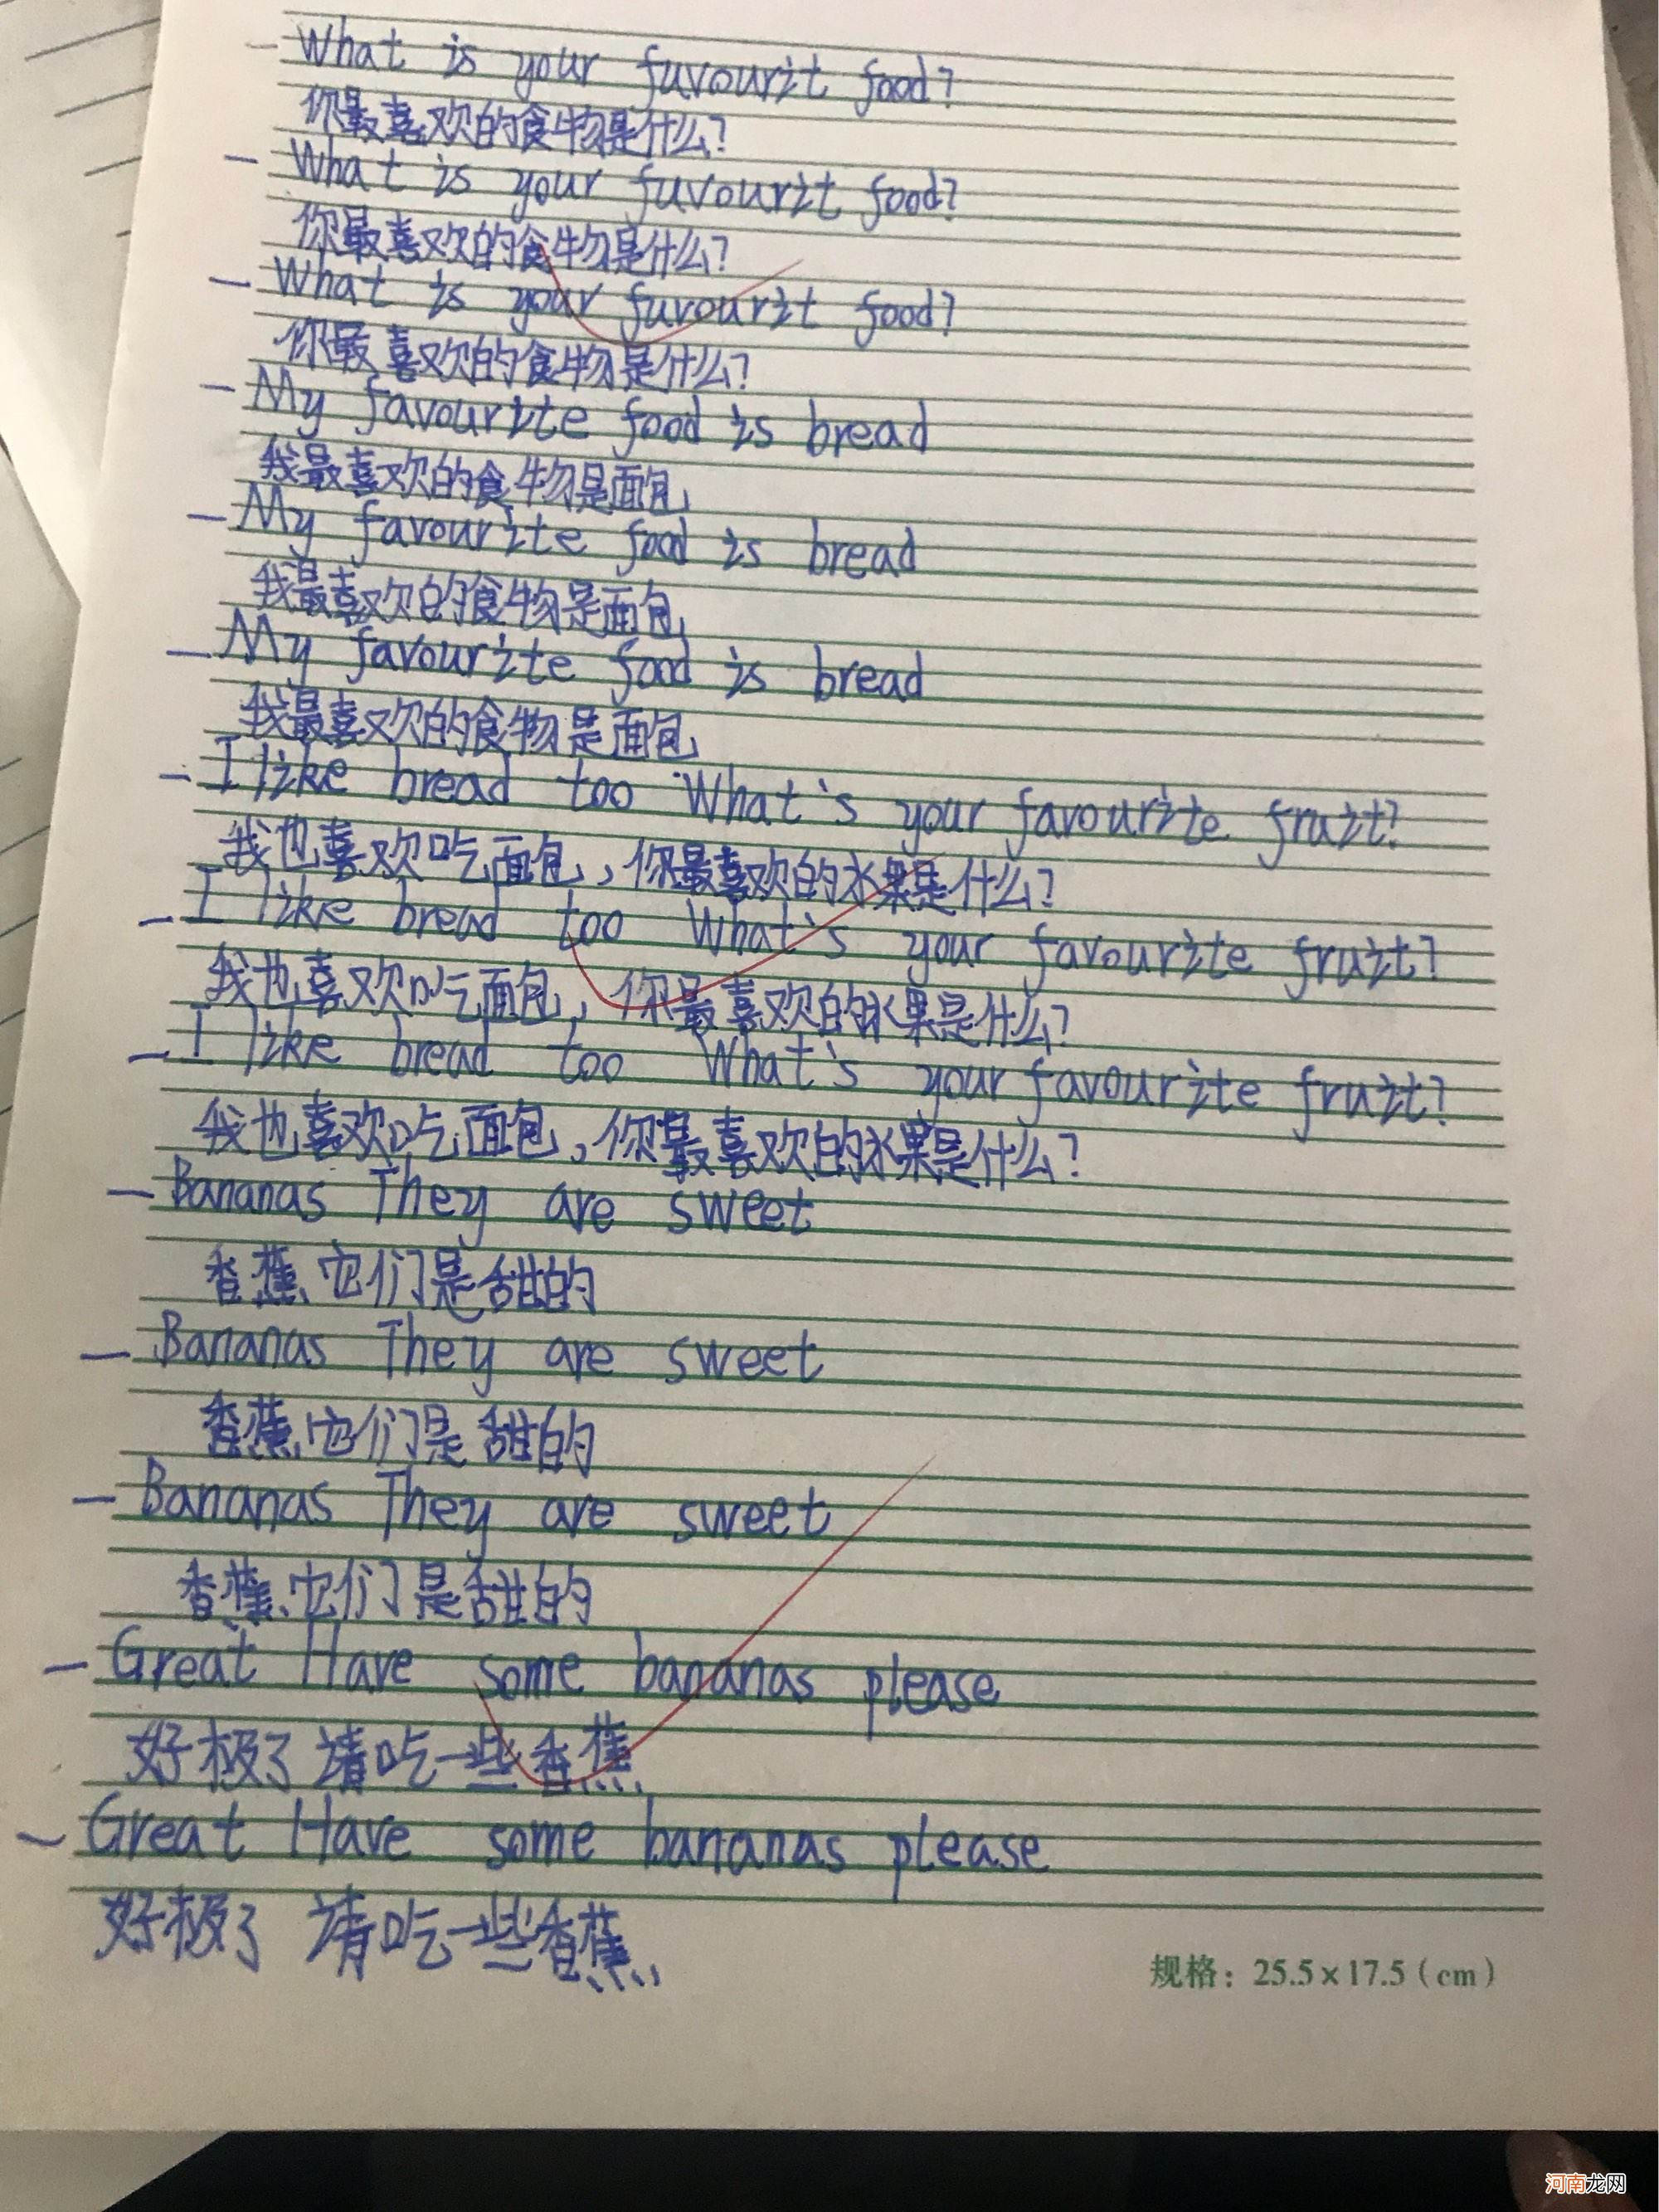 - What is your fuvourit food?
你最喜欢的食物是什么?
- What is your fuvourit food?
你最喜欢的食物是什么?
- What is your fuvourit food?
你最喜欢的食物是什么?
- My favourite food is bread
我最喜欢的食物是面包
- My favourite food is bread
我最喜欢的食物是面包
- My favourite food is bread
我最喜欢的食物是面包
- I like bread too What's your favourite fruit?
我也喜欢吃面包,你最喜欢的水果是什么?
- I like bread too What's your favourite fruit?
我也喜欢吃面包,你最喜欢的水果是什么?
- I like bread too What's your favourite fruit?
我也喜欢吃面包,你最喜欢的水果是什么?
- Bananas They are sweet
香蕉、它们是甜的
- Bananas They are sweet
香蕉、它们是甜的
- Bananas They are sweet
香蕉、它们是甜的
- Great Have some bananas please
好极了 请吃一些香蕉
- Great Have some bananas please
好极了 请吃一些香蕉
规格：25.5×17.5（cm）
河南龙网